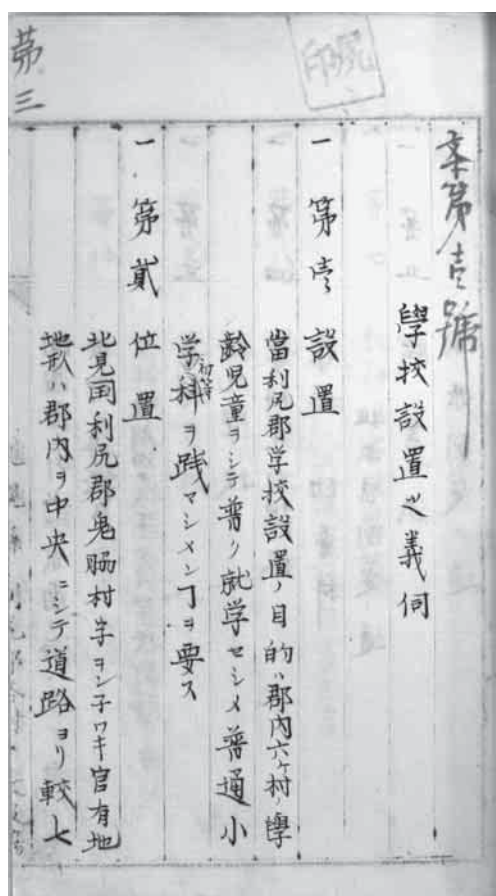 本第壱號
學校設置之義伺
一 第壱 設置
當利尻郡学校設置ノ目的ハ郡内六ヶ村ノ學
齢児童ヲシテ普ク就学セシメ普通小
学初等科ヲ践マシメンヿヲ要ス
一 第貳 位置
北見国利尻郡鬼脇村字ヲン子ワキ官有地
地形ハ郡内ヲ中央ニシテ道路ヨリ較七
第三